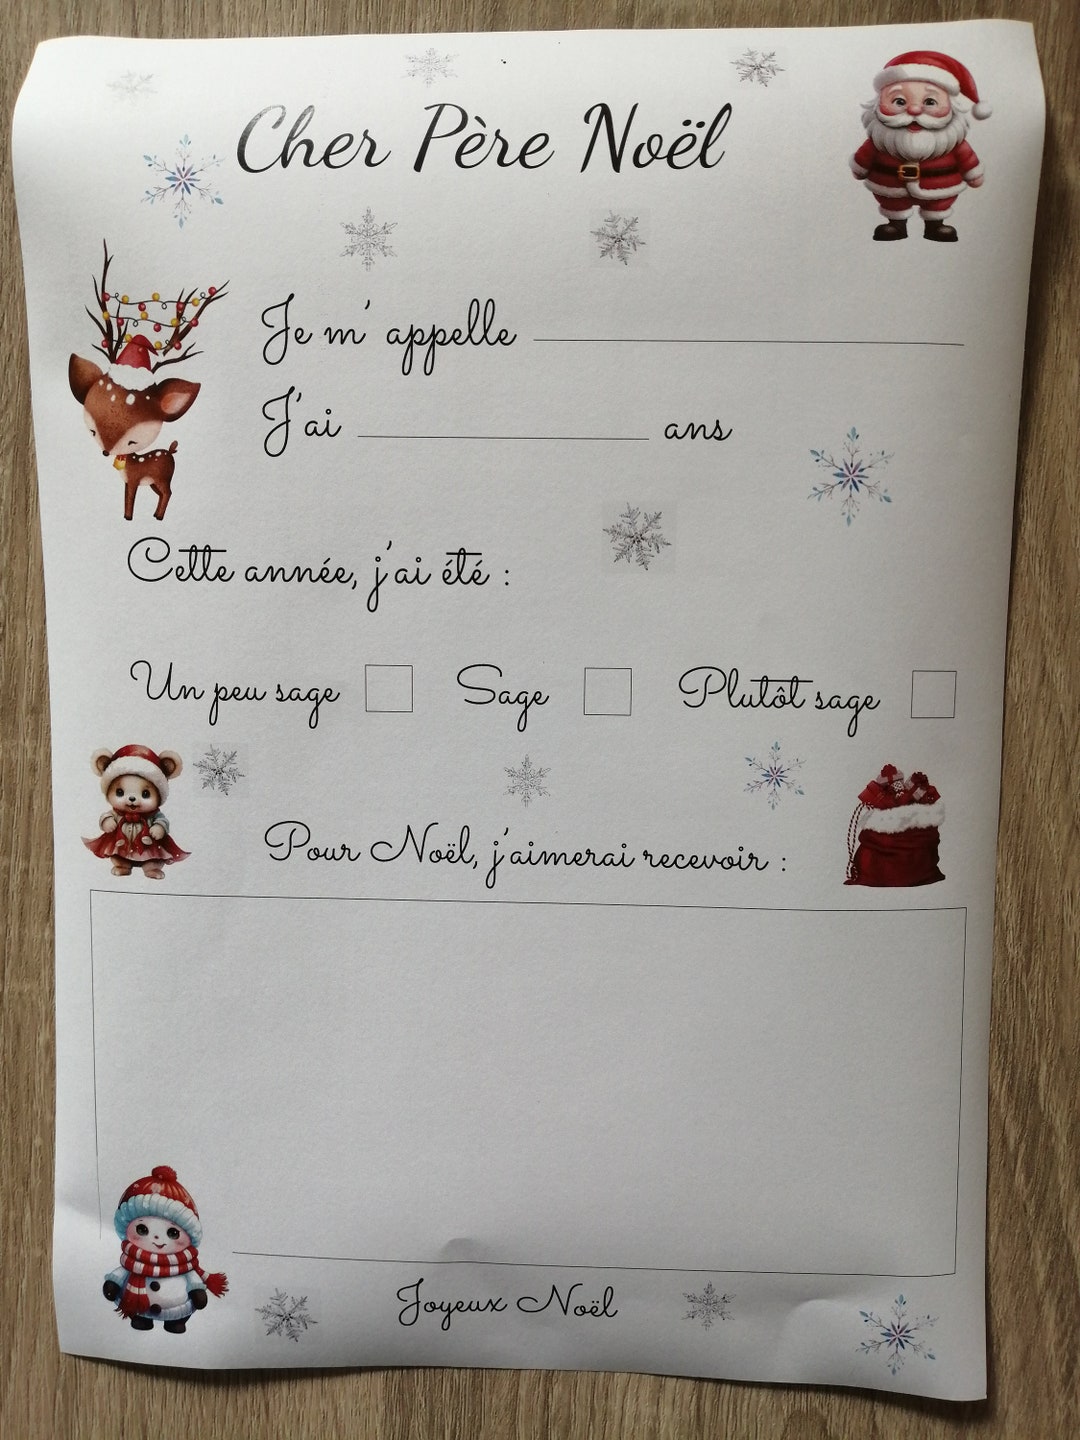 Cher Père Noël
Je m' appelle
J'ai ans
Cette année, j'ai été :
Un peu sage Sage Plutôt sage
Pour Noël, j'aimerai recevoir :
Joyeux Noël